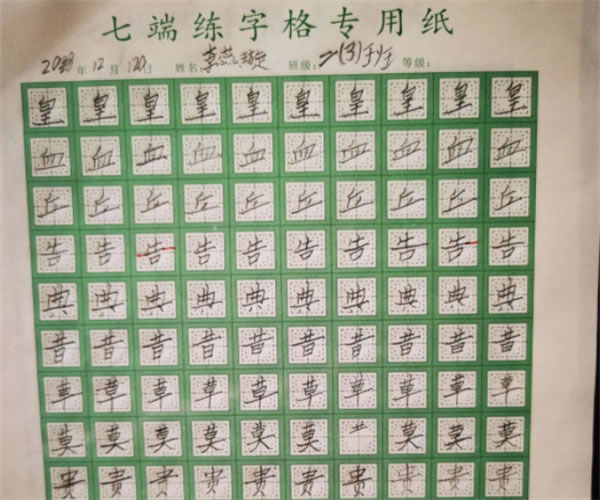 七端练字格专用纸
年12月20日 姓名: 班级:二(3)班 等级:
皇皇皇皇皇皇皇皇皇皇
血血血血血血血血血血
丘丘丘丘丘丘丘丘丘丘
告告告告告告告告告告
典典典典典典典典典典
昔昔昔昔昔昔昔昔昔昔
草草草草草草草草草草
莫莫莫莫莫莫艹莫莫莫
贵贵贵贵贵贵贵贵贵贵